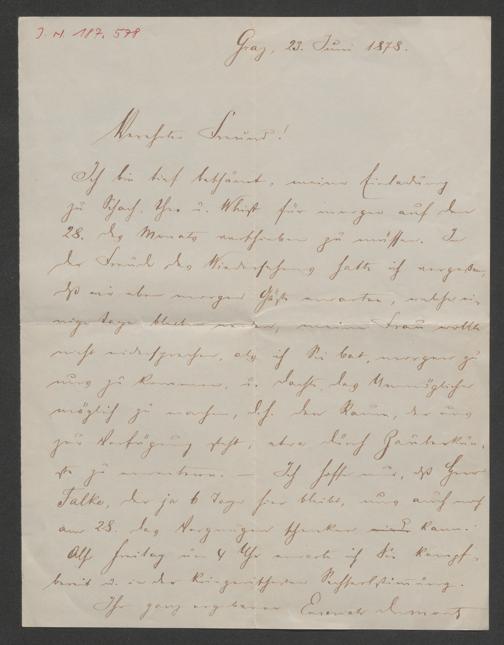 J. N. 187.578
Graz, 23. Juni 1878.
Verehrter Freund!
Ich bin tief beschämt, meine Einladung
zu Schach, Thee u. Whist für morgen auf den
28. des Monats verschieben zu müssen. In
der Freude des Wiedersehens hatte ich vergessen,
daß wir eben morgen Gäste erwarten, welche ei-
nige Tage bleiben werden, meine Frau wollte
nicht widersprechen, als ich Sie bat, morgen zu
uns zu kommen, u. dachte das Unmögliche
möglich zu machen, d.h. den Raum, der uns
zur Verfügung steht, etwa durch Zauberkün-
ste zu erweitern. — Ich hoffe nur, daß Herr
Falke, der ja 6 Tage hier bleibt, uns auch noch
am 28. das Vergnügen schenken kann.
Also Freitag um 4 Uhr erwarte ich Sie kampf-
bereit u. in der
Ihr ganz ergebener